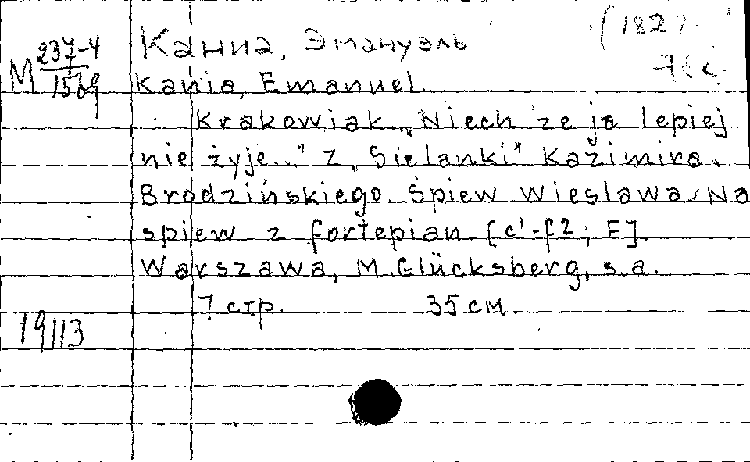 М 237-4
1569
Каниа, Эмануэль
(182
Kania, Emanuel.
Krakowiak „Niech że ja lepiej
nie żyje..." z „Sielanki" Kazimira.
Brodzińskiego. Śpiew Wiesława. Na
spiew z fortepian. [c'-f2; E].
Warszawa, M. Glücksberg, s.a.
7 стр. 35 см.
19113